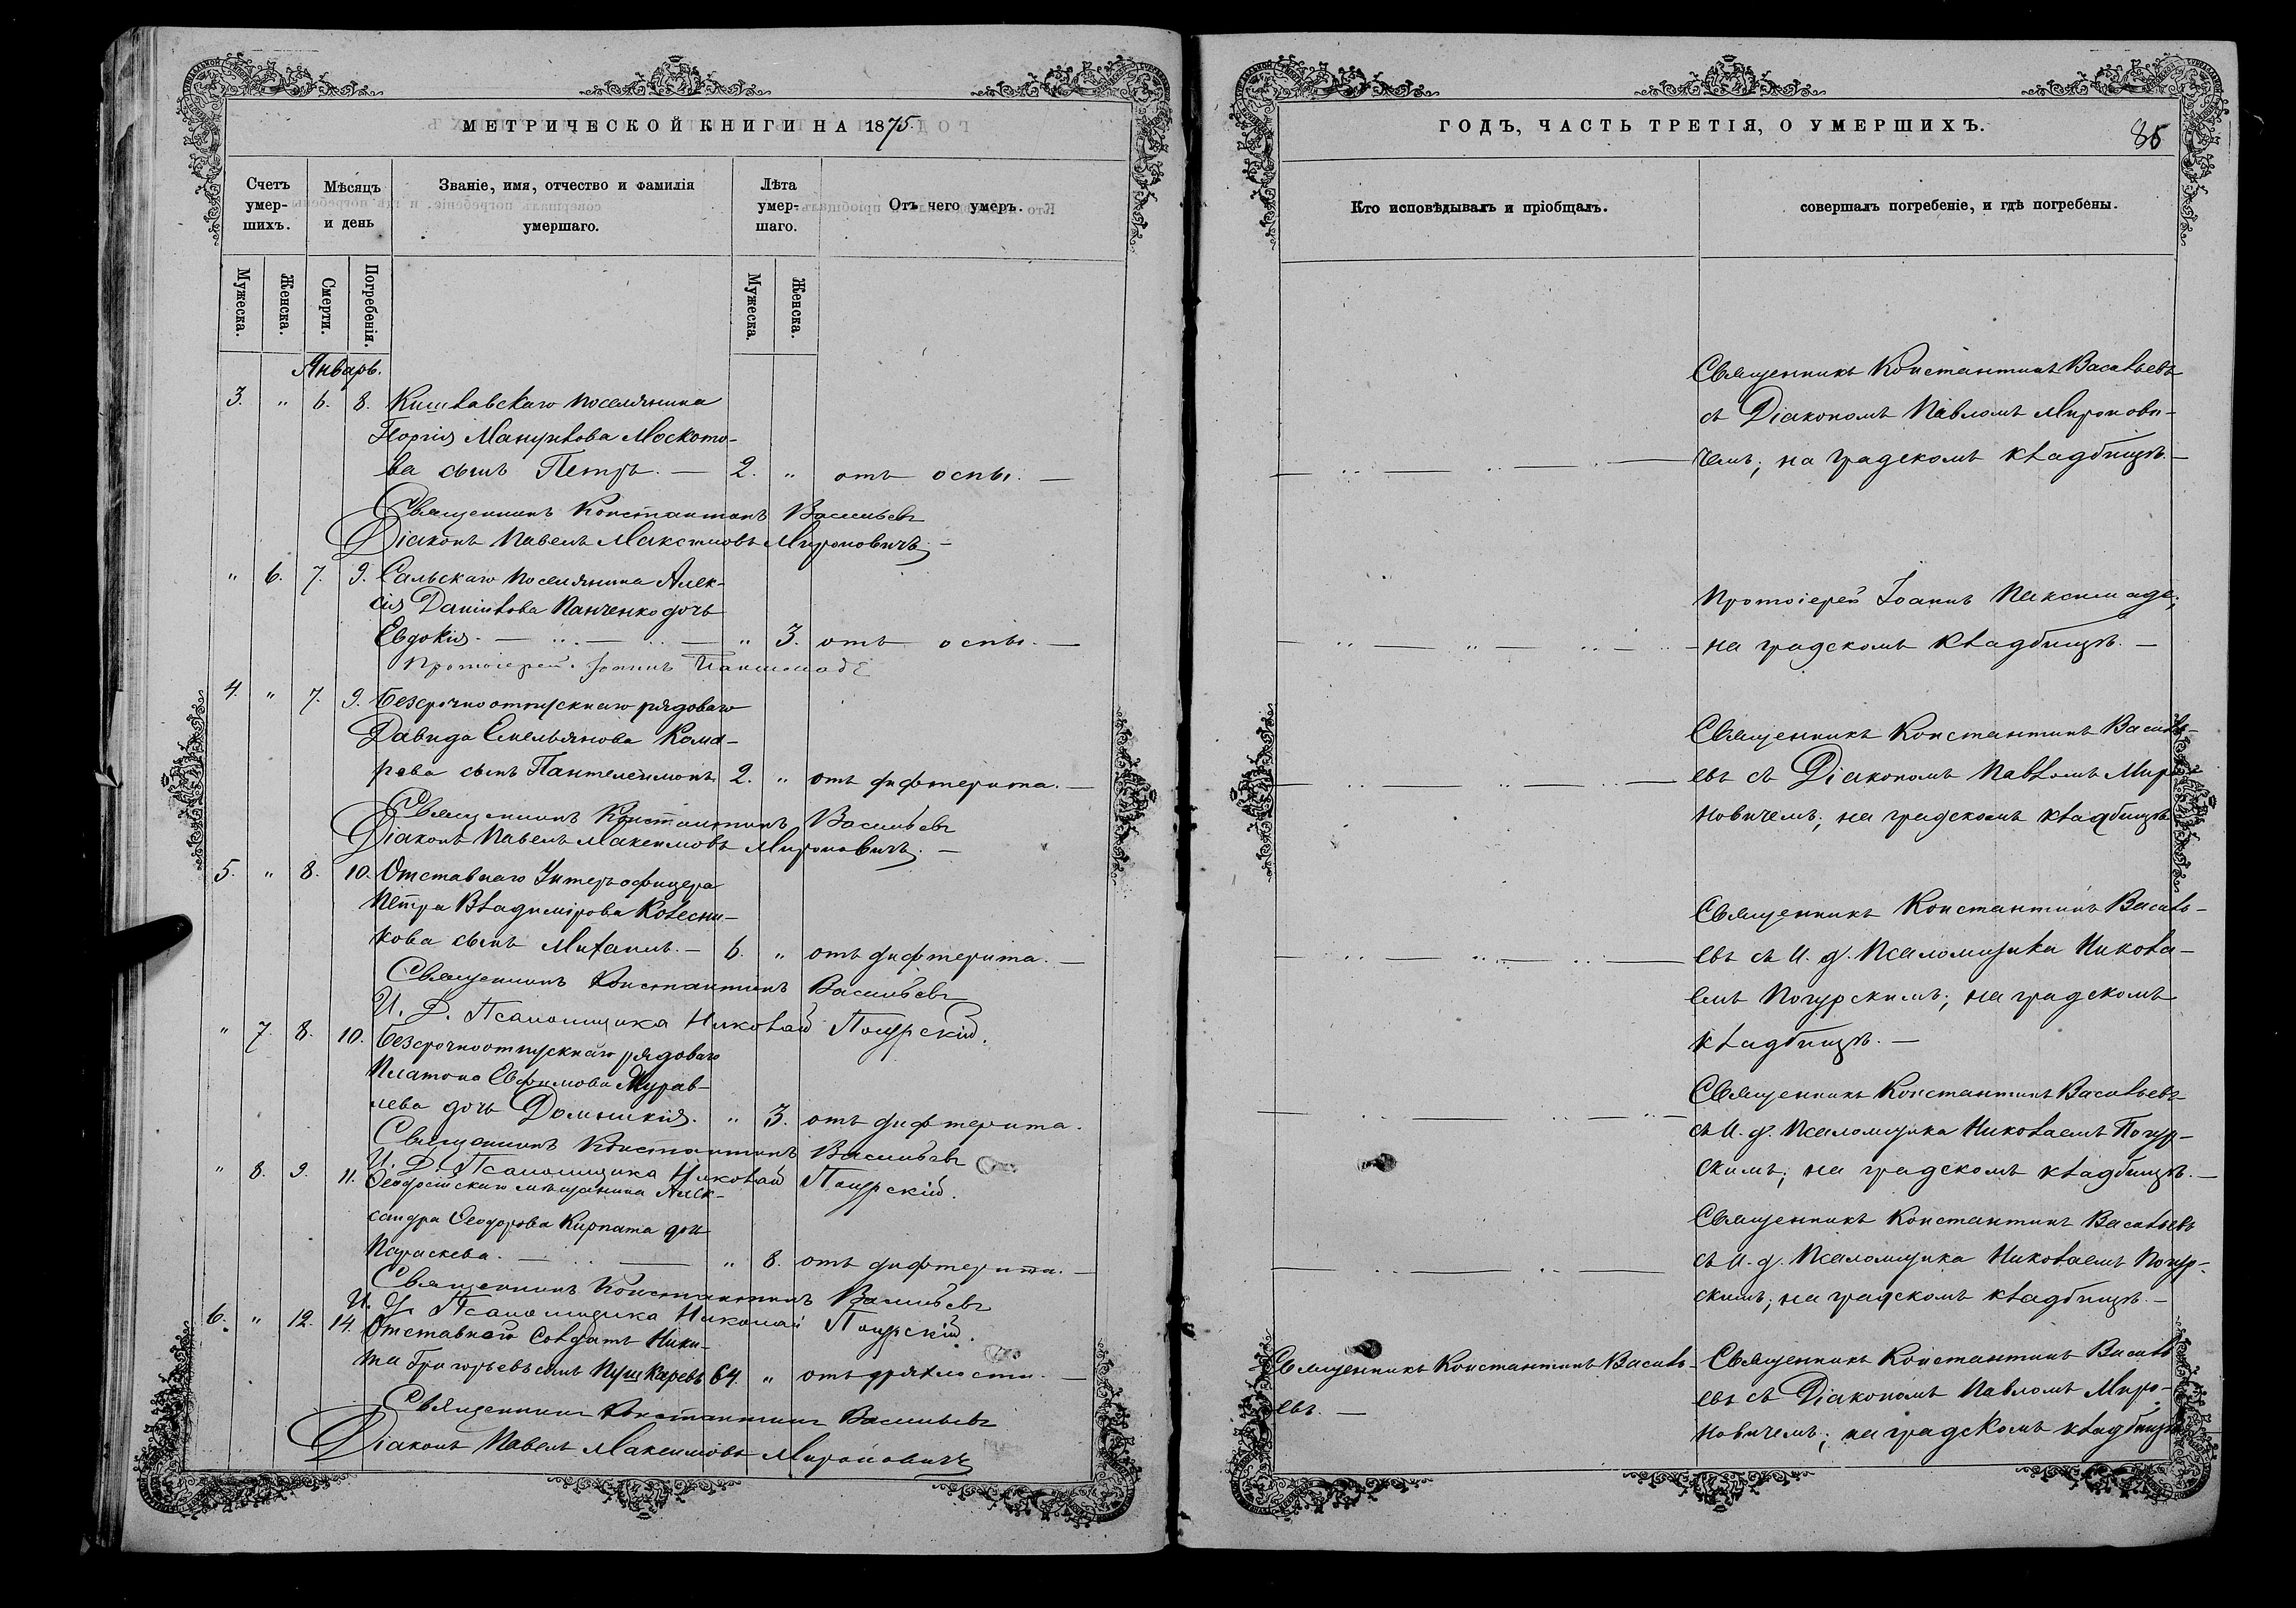 МЕТРИЧЕСКОЙ КНИГИ НА 1875.
Счетъ умер-шихъ.
Мѣсяцъ и день
Званіе, имя, отчество и фамилія умершаго.
Лѣта умер-шаго.
Отъ чего умеръ.
Мужеска.
Женска.
Смерти.
Погребенія.
Мужеска.
Женска.
Январь.
3. " 6. 8. поселянина
Моското-
ва сынъ Петръ. — 2. " отъ оспы. —
Священникъ Константинъ Васильевъ
Діаконъ Павелъ Максимовъ Мироновичъ. —
" 6. 7. 9. поселянина Алек-
сія Данилова Панченко дочь
Евдокія. — " 3. отъ оспы. —
Протоіерей Іоаннъ
4. " 7. 9. Безсрочноотпускнаго рядоваго
Давида Емельянова Кома-
рова сынъ Пантелеимонъ 2. " отъ дифтерита. —
Священникъ Константинъ Васильевъ
Діаконъ Павелъ Максимовъ Мироновичъ. —
5. " 8. 10. Отставнаго Унтеръ офицера
Петра Владимірова Колесни-
кова сынъ Михаилъ. — 6. " отъ дифтерита. —
Священникъ Константинъ Васильевъ
И. Д. Псаломщика Николай Погурскій.
" 7. 8. 10. Безсрочноотпускнаго рядоваго
Платона Евфимова Мурав-
лева дочь Домникія. " 3. отъ дифтерита.
Священникъ Константинъ Васильевъ
И. Д. Псаломщика Николай Погурскій.
" 8. 9. 11. мѣщанина Алек-
сандра Ѳеодорова дочь
Параскева. — " 8. отъ дифтерита. —
Священникъ Константинъ Васильевъ
И. Д. Псаломщика Николай Погурскій.
6. " 12. 14. Отставной Солдатъ Ники-
та Григорьевъ сынъ Пушкаревъ 64. " отъ дряхлости. —
Священникъ Константинъ Васильевъ
Діаконъ Павелъ Максимовъ Мироновичъ
ГОДЪ, ЧАСТЬ ТРЕТІЯ, О УМЕРШИХЪ.
85
Кто исповѣдывалъ и пріобщалъ.
совершалъ погребеніе, и гдѣ погребены.
Священникъ Константинъ Васильевъ
съ Діакономъ Павломъ Миронови-
чемъ; на градскомъ кладбищѣ. —
Протоіерей Іоаннъ
на градскомъ кладбищѣ. —
Священникъ Константинъ Василь-
евъ съ Діакономъ Павломъ Миро-
новичемъ; на градскомъ кладбищѣ.
Священникъ Константинъ Василь-
евъ съ И. д. Псаломщика Никола-
емъ Погурскимъ; на градскомъ
кладбищѣ. —
Священникъ Константинъ Васильевъ
съ И. д. Псаломщика Николаемъ Погур-
скимъ; на градскомъ кладбищѣ. —
Священникъ Константинъ Васильевъ
съ И. д. Псаломщика Николаемъ Погур-
скимъ; на градскомъ кладбищѣ. —
Священникъ Константинъ Василь-
евъ. —
Священникъ Константинъ Василь-
евъ съ Діакономъ Павломъ Миро-
новичемъ; на градскомъ кладбищѣ